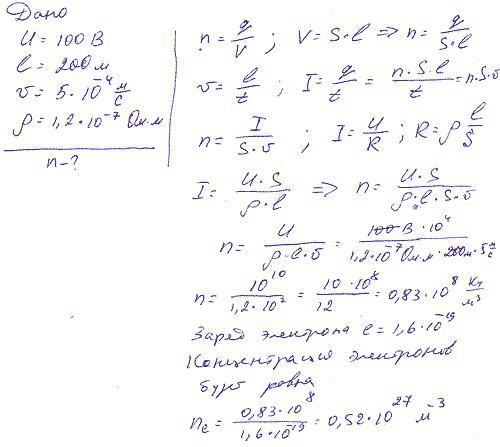 Дано
U = 100 В
l = 200 м
v = 5·10⁻⁴ м/с
ρ = 1,2·10⁻⁷ Ом·м
n - ?
n = q/V ; V = S·l => n = q/(S·l)
v = l/t ; I = q/t = n·S·l/t = n·S·v
n = I/(S·v) ; I = U/R ; R = ρ l/S
I = U·S/(ρ·l) => n = U·S/(ρ·l·S·v)
n = U/(ρ·l·v) = 100 В·10⁴/(1,2·10⁻⁷ Ом·м·200м·5 м/с)
n = 10¹⁰/(1,2·10²) = 10·10⁸/12 = 0,83·10⁸ Кл/м³
Заряд электрона e = 1,6·10⁻¹⁹
Концентрация электронов
будт равна
nₑ = 0,83·10⁸/(1,6·10⁻¹⁹) = 0,52·10²⁷ м⁻³